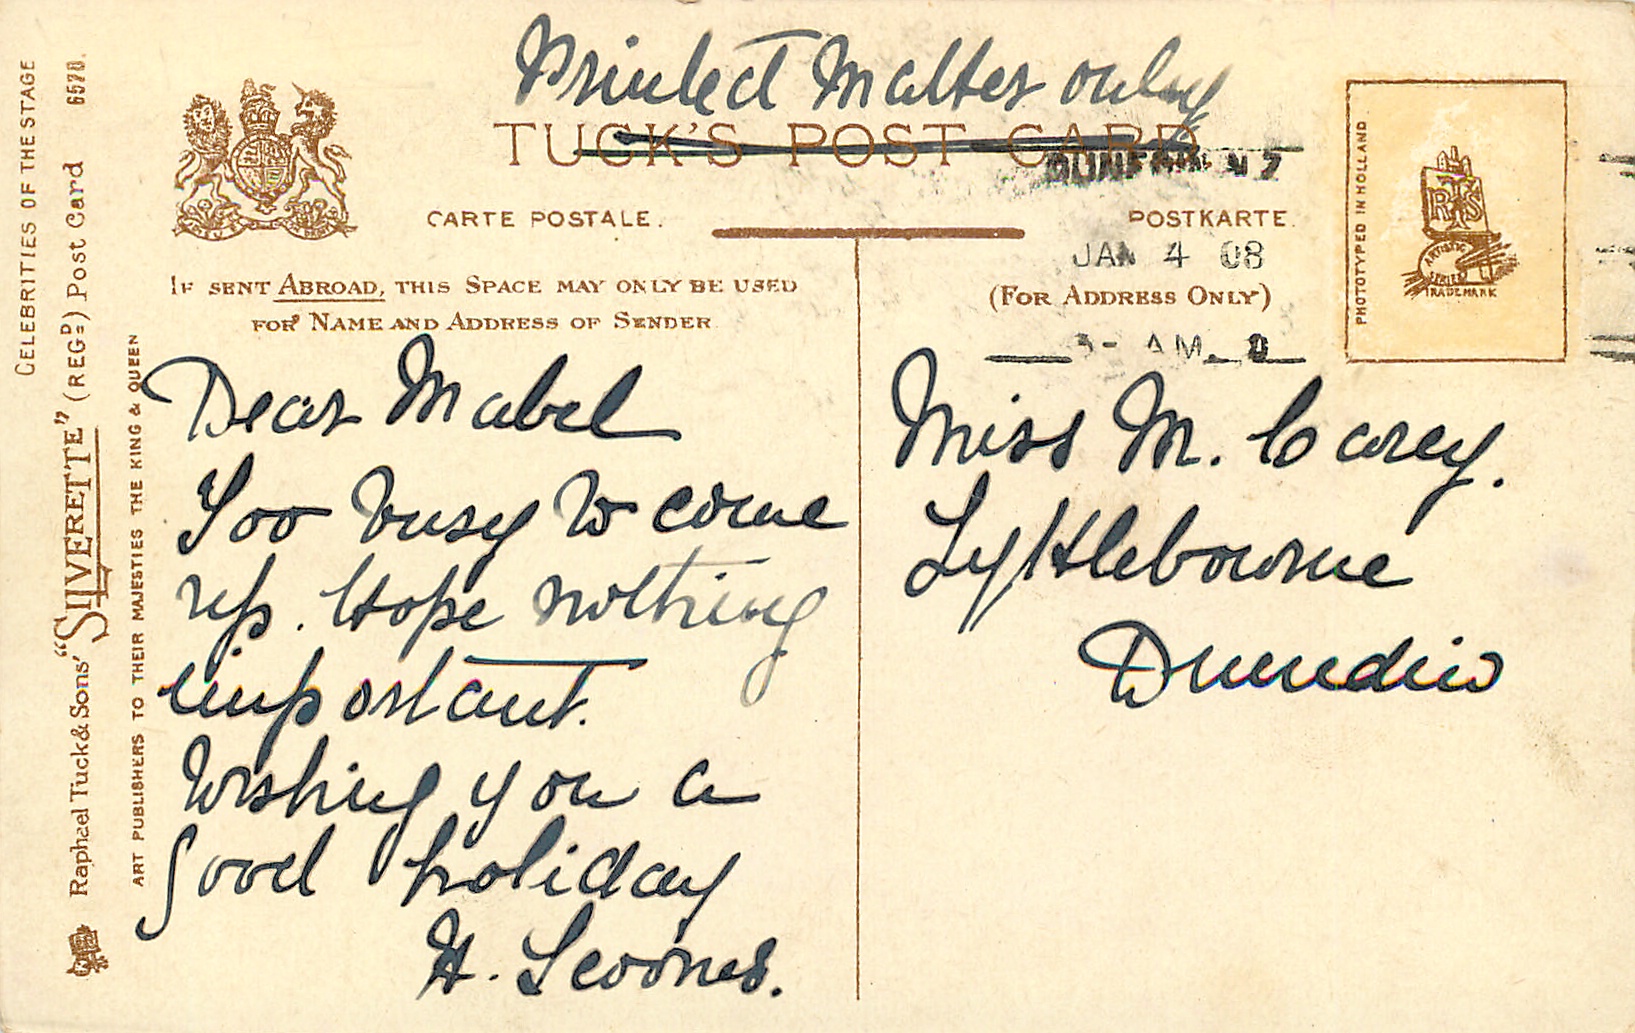 Printed Matter only
TUCK'S POST CARD
DUNEDIN N Z
CARTE POSTALE.
POSTKARTE.
JAN 4 08
IF SENT ABROAD, THIS SPACE MAY ONLY BE USED
FOR NAME AND ADDRESS OF SENDER
(FOR ADDRESS ONLY)
AM
PHOTOTYPED IN HOLLAND
RTS
ARTISTIC
SERIES
TRADE MARK
Dear Mabel
Too busy to come
up. Hope nothing
important.
Wishing you a
good holiday
H. Scoones.
Miss M. Carey.
Lyttlebourne
Dunedin
CELEBRITIES OF THE STAGE
Raphael Tuck & Sons' "SILVERETTE" (REGD) Post Card 6570.
ART PUBLISHERS TO THEIR MAJESTIES THE KING & QUEEN